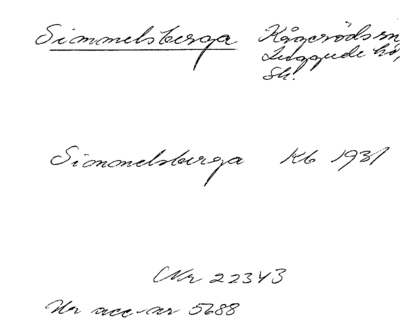 Simmelsberga Kågeröds sn
Luggude hd,
Sk.
Simmelsberga Kb 1931
Nr 22343
Ur acc-nr 5688